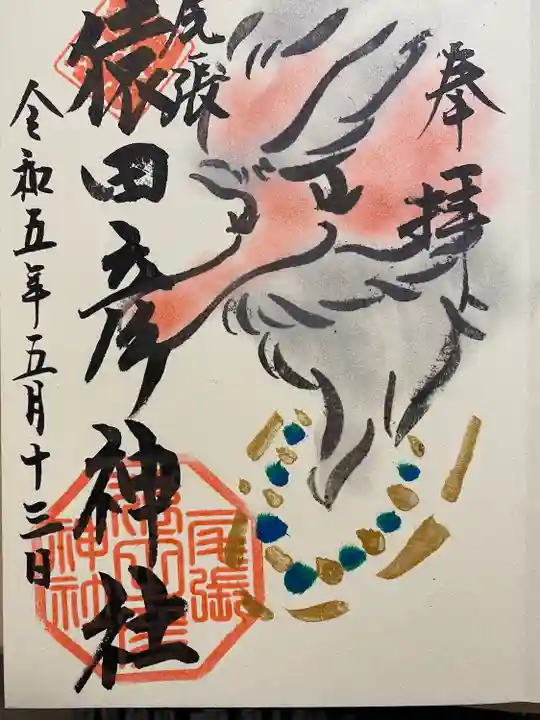 奉拝
尾張
猿田彦神社
令和五年五月十三日
尾張
神社